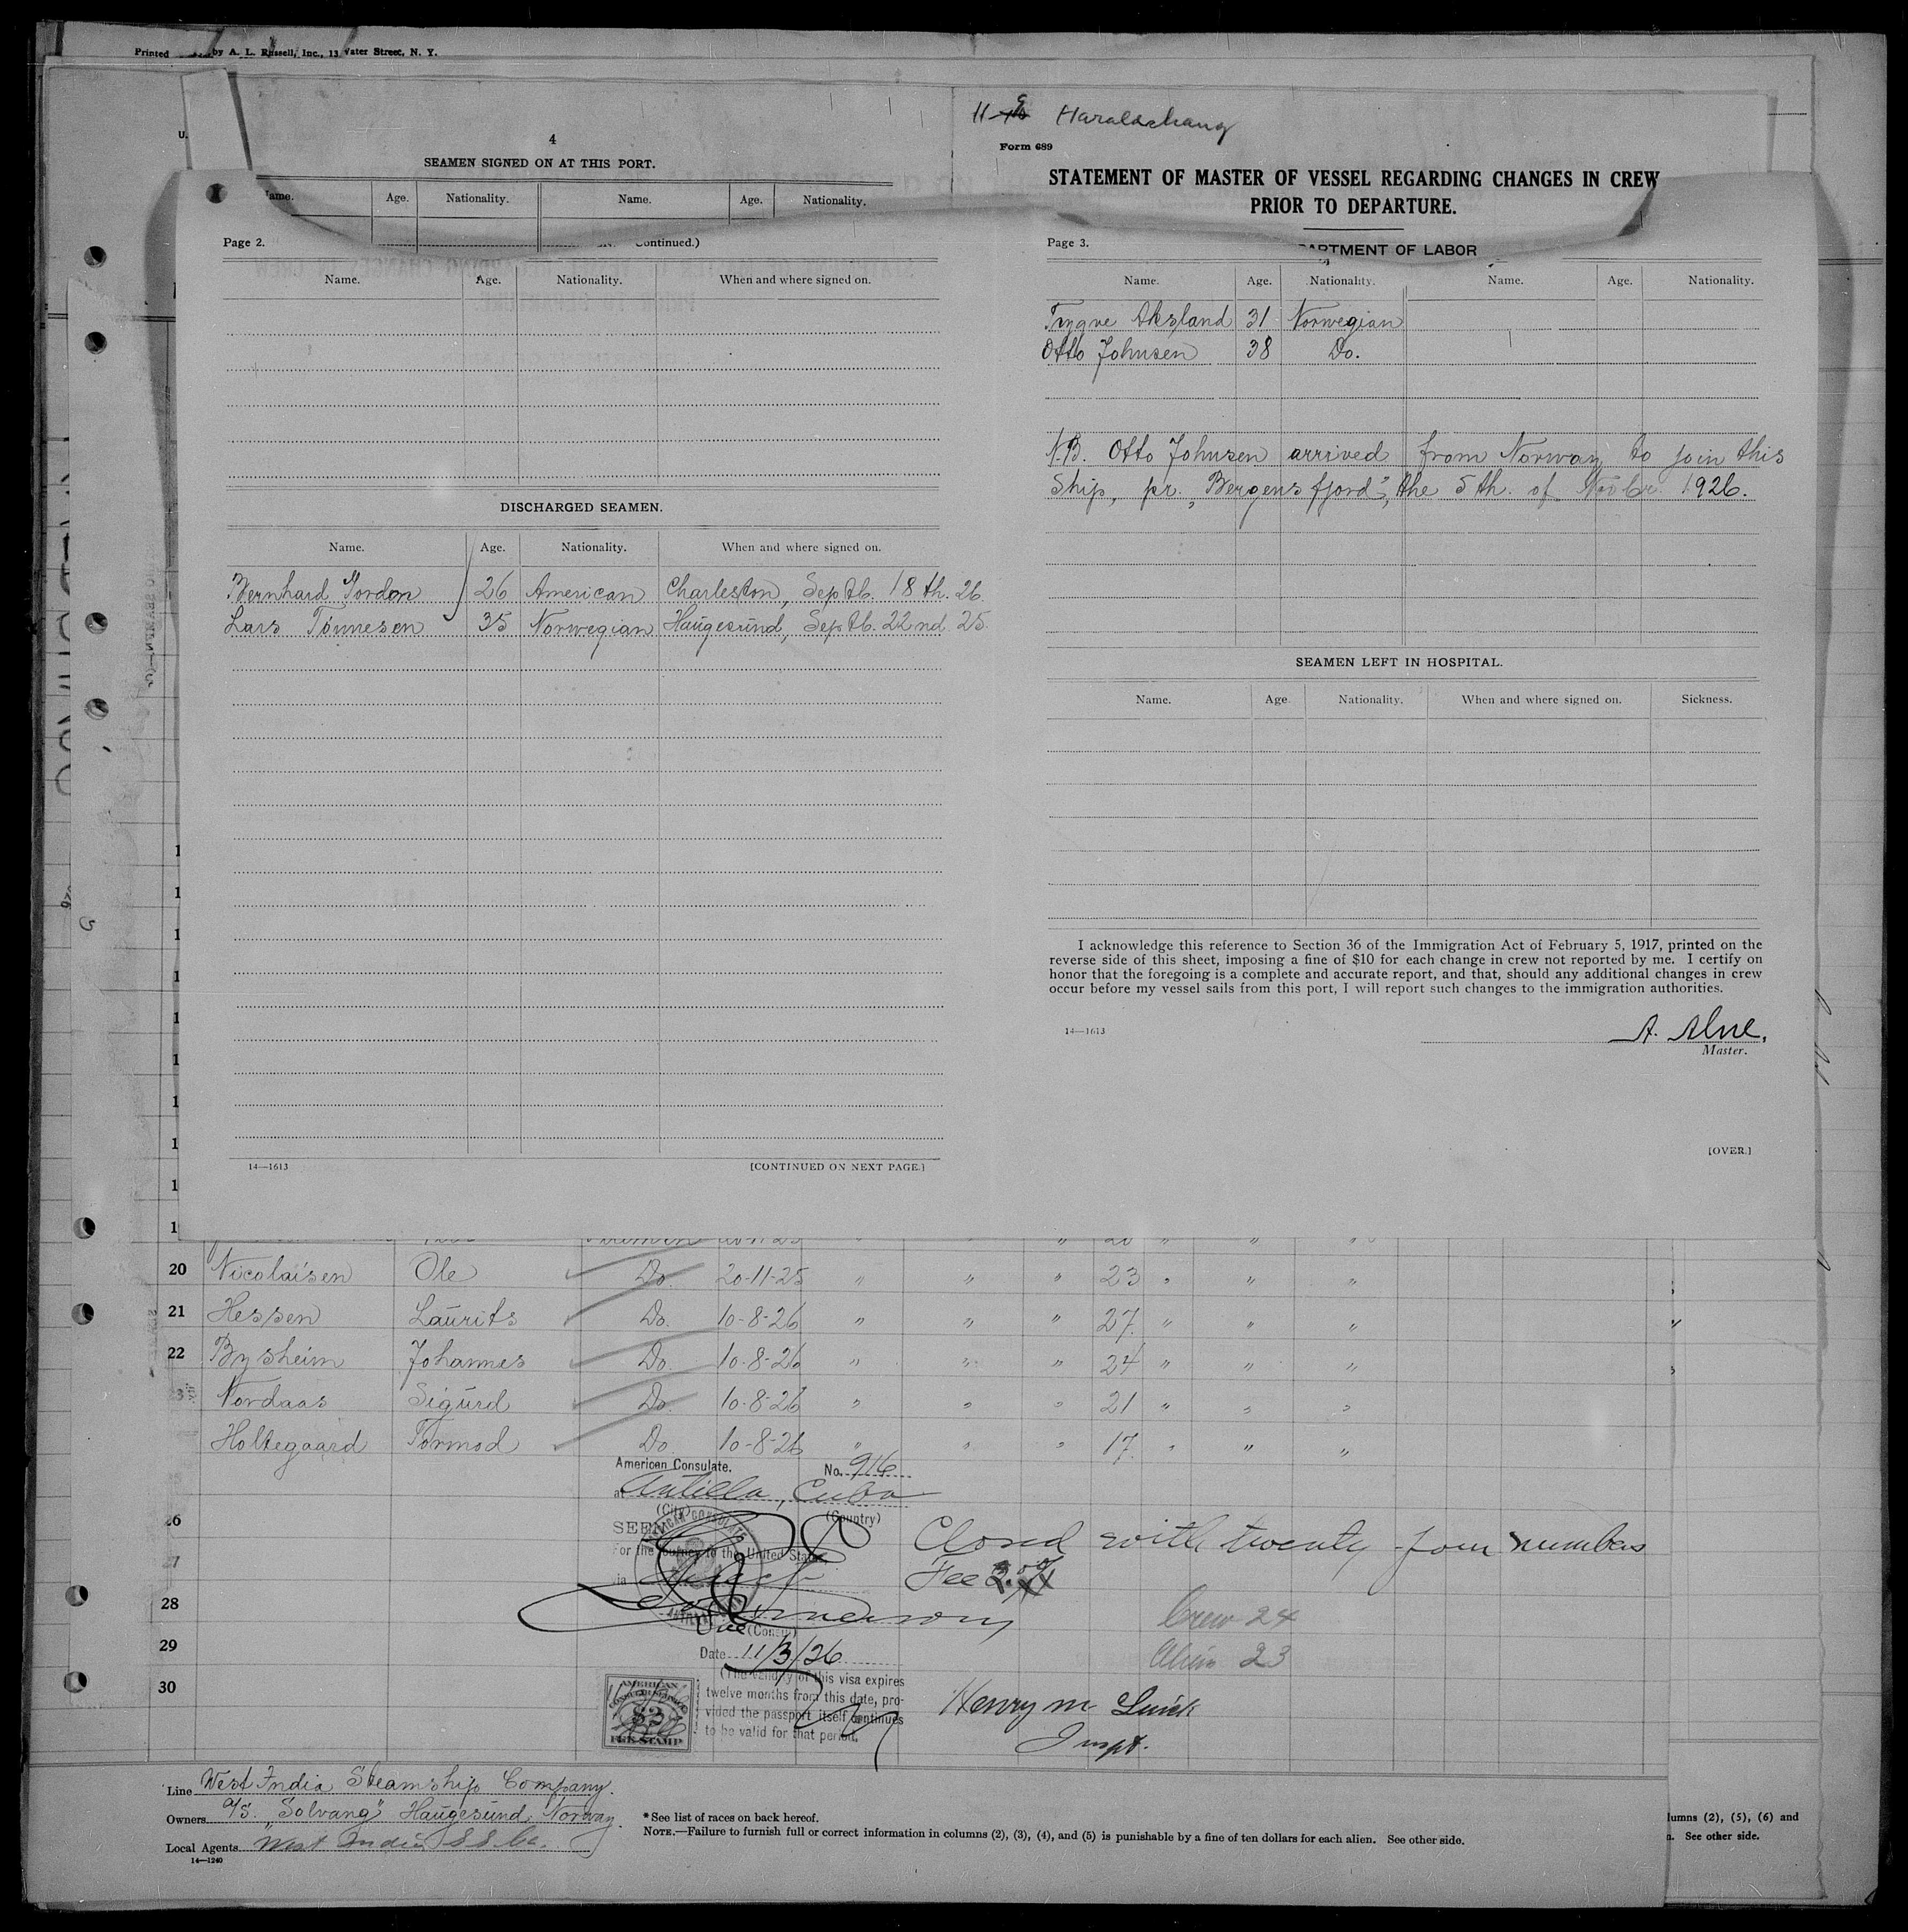 Printed by A. L. Russell, Inc., 13 Water Street, N. Y.
U.
4
SEAMEN SIGNED ON AT THIS PORT.
Name. Age. Nationality. Name. Age. Nationality.
Haraldshaug
Form 689
STATEMENT OF MASTER OF VESSEL REGARDING CHANGES IN CREW
PRIOR TO DEPARTURE.
Page 2. Continued.)
Name. Age. Nationality. When and where signed on.
DISCHARGED SEAMEN.
Name. Age. Nationality. When and where signed on.
Bernhard Gordon 26 American Charleston, Septb. 18 th. 26
Lars Tönnesen 35 Norwegian Haugesund, Septb. 22 nd. 25
14—1613 [CONTINUED ON NEXT PAGE.]
Page 3. PARTMENT OF LABOR
Name. Age. Nationality. Name. Age. Nationality.
Trygve Aksland 31 Norwegian
Otto Johnsen 38 Do.
N.B. Otto Johnsen arrived from Norway to join this
Ship, pr. "Bergensfjord", the 5th. of Novbr. 1926.
SEAMEN LEFT IN HOSPITAL.
Name. Age Nationality. When and where signed on. Sickness.
I acknowledge this reference to Section 36 of the Immigration Act of February 5, 1917, printed on the
reverse side of this sheet, imposing a fine of $10 for each change in crew not reported by me. I certify on
honor that the foregoing is a complete and accurate report, and that, should any additional changes in crew
occur before my vessel sails from this port, I will report such changes to the immigration authorities.
14—1613 A. Alne,
Master.
[OVER.]
20 Nicolaisen Ole Do. 20-11-25 " " " 23 " " "
21 Hessen Laurits Do. 10-8-26 " " " 27. " " "
22 Bysheim Johannes Do. 10-8-26 " " " 24 " " "
Nordaas Sigurd Do. 10-8-26 " " " 21 " " "
Holtegaard Tormod Do 10-8-26 " " " 17. " " "
American Consulate. No. 916
at Antilla, Cuba
(City) (Country)
26 SEEN
Closed with twenty-four numbers
For the journey to the United States
Fee
28 Crew 24
Vice (Consul)
29 Date 11/3/26 Alien 23
(The validity of this visa expires
30 twelve months from this date, pro-
vided the passport itself continues
to be valid for that period.
AMERICAN
CONSULAR SERVICE
$2
FEE STAMP
Henry M
Inspt.
Line West India Steamship Company.
Owners A/S. "Solvang" Haugesund, Norway.
Local Agents West India S S Co.
14—1240
*See list of races on back hereof.
NOTE.—Failure to furnish full or correct information in columns (2), (3), (4), and (5) is punishable by a fine of ten dollars for each alien. See other side.
lumns (2), (5), (6) and
n. See other side.